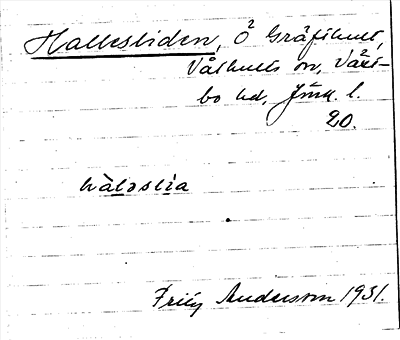 Hallesliden, Ö² Gräfthult,
Våthults sn, Väst-
bo hd, Jönk. l.
20.
hàləslia
Frity Andersson 1931.